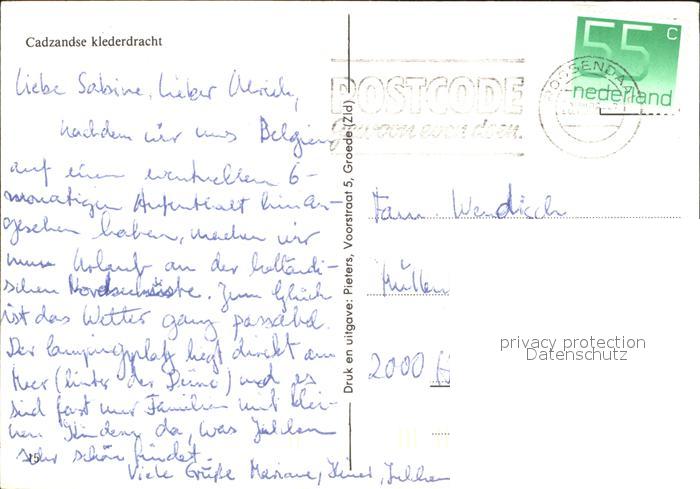 Cadzandse klederdracht
55 c
nederland
ROOSENDAAL
POSTCODE
gewoon even doen.
Liebe Sabine, lieber Ulrich,
nachdem wir uns Belgien
auf einen eventuellen 6-
monatigen Aufenthalt hin an-
gesehen haben, machen wir
Urlaub an der holländi-
schen Nordseeküste. Zum Glück
ist das Wetter ganz passabel.
Der Campingplatz liegt direkt am
Meer (hinter der Düne) und es
sind fast nur Familien mit klei-
nen Kindern da, was
sehr schön findet.
Viele Grüße
Druk en uitgave: Pieters, Voorstraat 5, Groede (Zld)
Fam. Wendisch
2000 H
privacy protection
Datenschutz